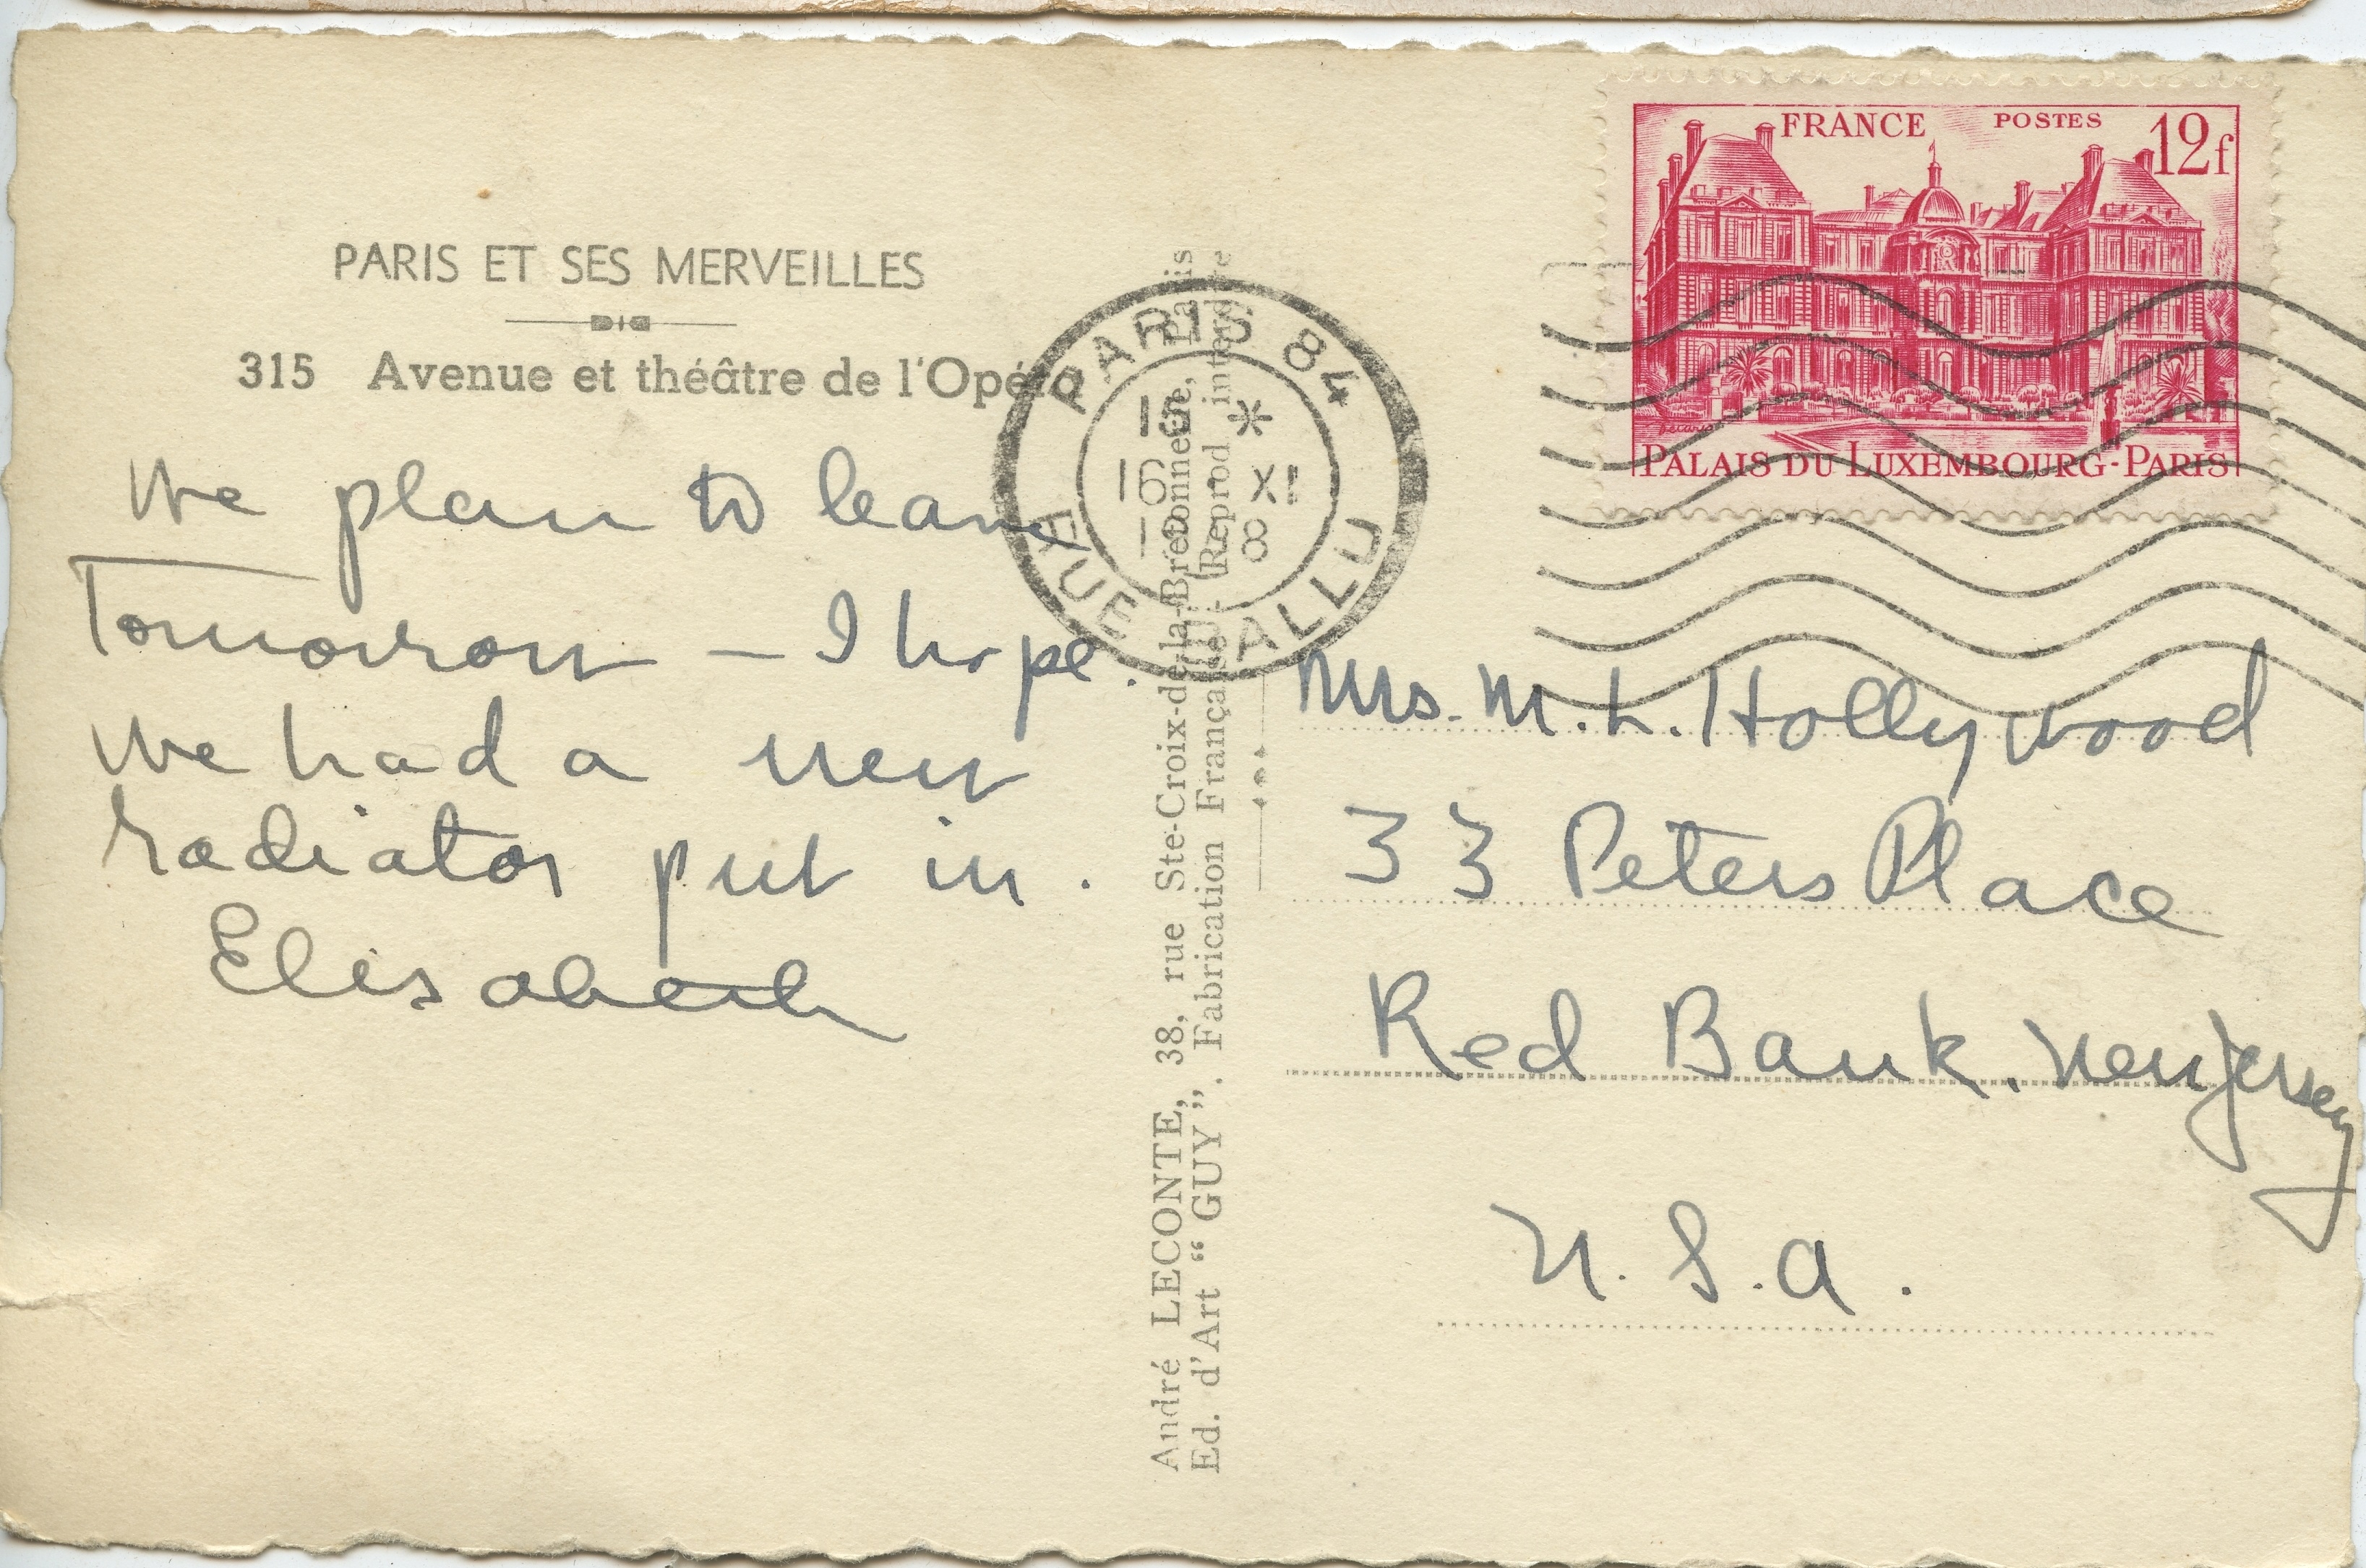 PARIS ET SES MERVEILLES
315 Avenue et théâtre de l'Opéra
We plan to leave
Tomorrow — I hope.
We had a new
radiator put in.
Elisabeth
André LECONTE, 38, rue Ste-Croix-de-la-Bretonnerie, Paris
Ed. d'Art “ GUY „. Fabrication Française (Reprod interdite
FRANCE POSTES 12f
PALAIS DU LUXEMBOURG-PARIS
PARIS 84
18 *
16 XI
8
RUE BALLU
Mrs. M. L. Hollywood
33 Peters Place
Red Bank. New Jersey
U.S.A.